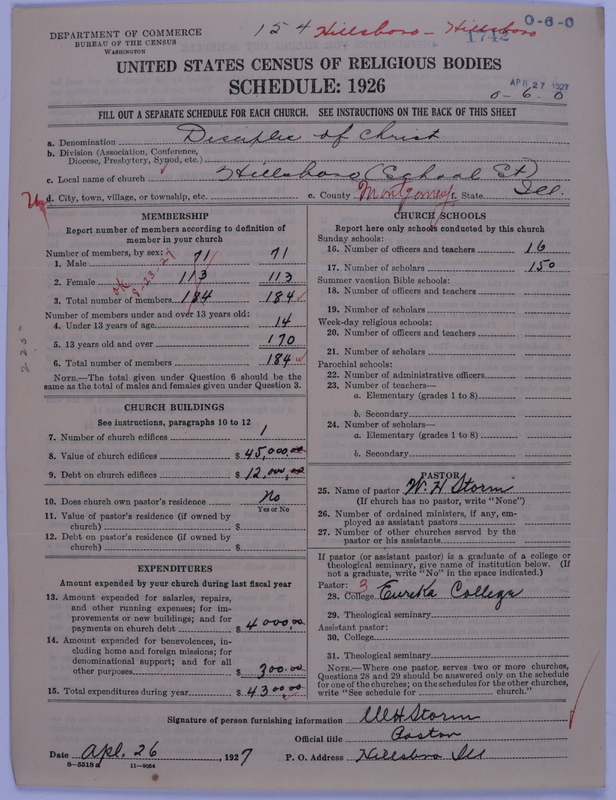 DEPARTMENT OF COMMERCE
BUREAU OF THE CENSUS
WASHINGTON
154 Hillsboro - Hillsboro
1742
0-6-0
UNITED STATES CENSUS OF RELIGIOUS BODIES
SCHEDULE: 1926
APR 27 1927
0-6.0
FILL OUT A SEPARATE SCHEDULE FOR EACH CHURCH. SEE INSTRUCTIONS ON THE BACK OF THIS SHEET
a. Denomination Disciples of Christ
b. Division (Association, Conference,
Diocese, Presbytery, Synod, etc.)
c. Local name of church Hillsboro (School St)
d. City, town, village, or township, etc. e. County Montgomery f. State Ill.
MEMBERSHIP
Report number of members according to definition of
member in your church
Number of members, by sex:
1. Male 71 71
2. Female 113 113
3. Total number of members 184 184
OK 9-23-27
Number of members under and over 13 years old:
4. Under 13 years of age 14
5. 13 years old and over 170
6. Total number of members 184
NOTE.—The total given under Question 6 should be the
same as the total of males and females given under Question 3.
CHURCH BUILDINGS
See instructions, paragraphs 10 to 12
7. Number of church edifices 1
8. Value of church edifices $ 45,000.00
9. Debt on church edifices $ 12,000.00
10. Does church own pastor's residence No
Yes or No
11. Value of pastor's residence (if owned by
church) $
12. Debt on pastor's residence (if owned by
church) $
EXPENDITURES
Amount expended by your church during last fiscal year
13. Amount expended for salaries, repairs,
and other running expenses; for im-
provements or new buildings; and for
payments on church debt $ 4000.00
14. Amount expended for benevolences, in-
cluding home and foreign missions; for
denominational support; and for all
other purposes $ 300.00
15. Total expenditures during year $ 4300.00
CHURCH SCHOOLS
Report here only schools conducted by this church
Sunday schools:
16. Number of officers and teachers 16
17. Number of scholars 150
Summer vacation Bible schools:
18. Number of officers and teachers
19. Number of scholars
Week-day religious schools:
20. Number of officers and teachers
21. Number of scholars
Parochial schools:
22. Number of administrative officers
23. Number of teachers—
a. Elementary (grades 1 to 8)
b. Secondary
24. Number of scholars—
a. Elementary (grades 1 to 8)
b. Secondary
PASTOR
25. Name of pastor W. H Storm
(If church has no pastor, write "None")
26. Number of ordained ministers, if any, em-
ployed as assistant pastors
27. Number of other churches served by the
pastor or his assistants
If pastor (or assistant pastor) is a graduate of a college or
theological seminary, give name of institution below. (If
not a graduate, write "No" in the space indicated.)
Pastor: 3
28. College Eureka College
29. Theological seminary
Assistant pastor:
30. College
31. Theological seminary
NOTE.—Where one pastor serves two or more churches,
Questions 28 and 29 should be answered only on the schedule
for one of the churches; on the schedules for the other churches,
write "See schedule for church."
Signature of person furnishing information W H Storm
Official title Pastor
Date Apl. 26, 1927 P. O. Address Hillsboro Ill
8—5518a 11—9054